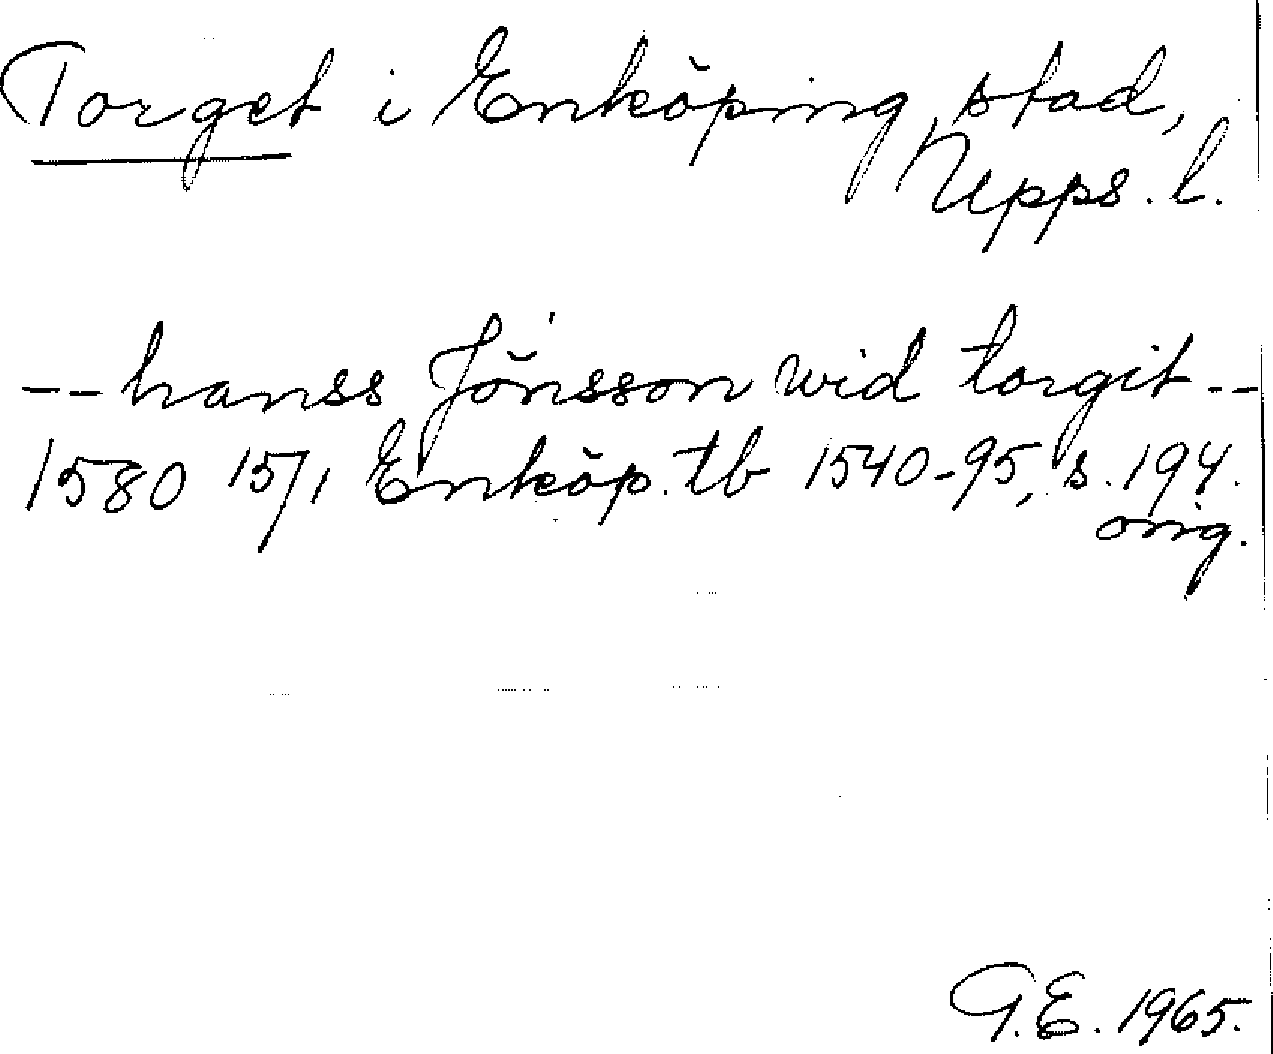 Torget i Enköping, stad,
Upps. l.
-- hanss Jönsson wid torgit --
1580 15/1 Enköp. tb 1540-95, s. 194.
orig.
G.E. 1965.